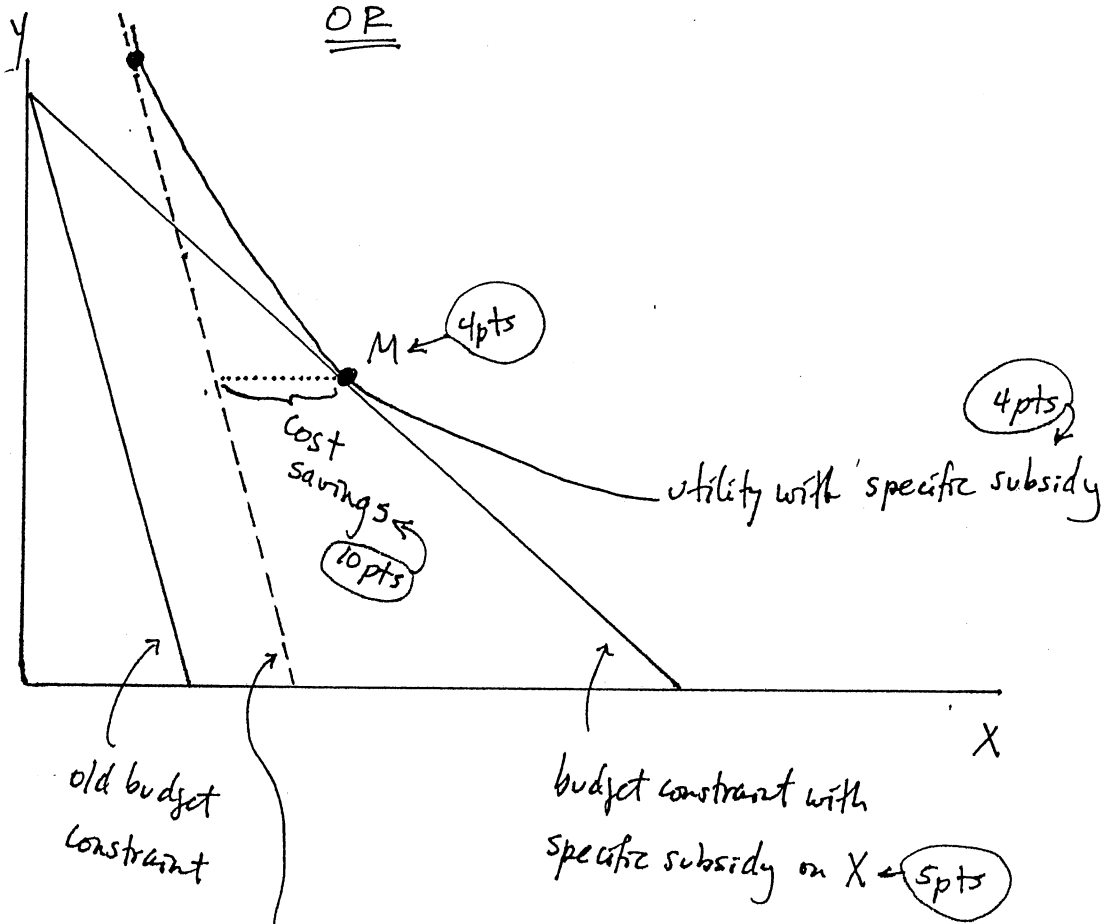 y
OR
4pts
M
4pts
cost
savings
10pts
utility with specific subsidy
X
old budget
constraint
budget constraint with
specific subsidy on X
5pts